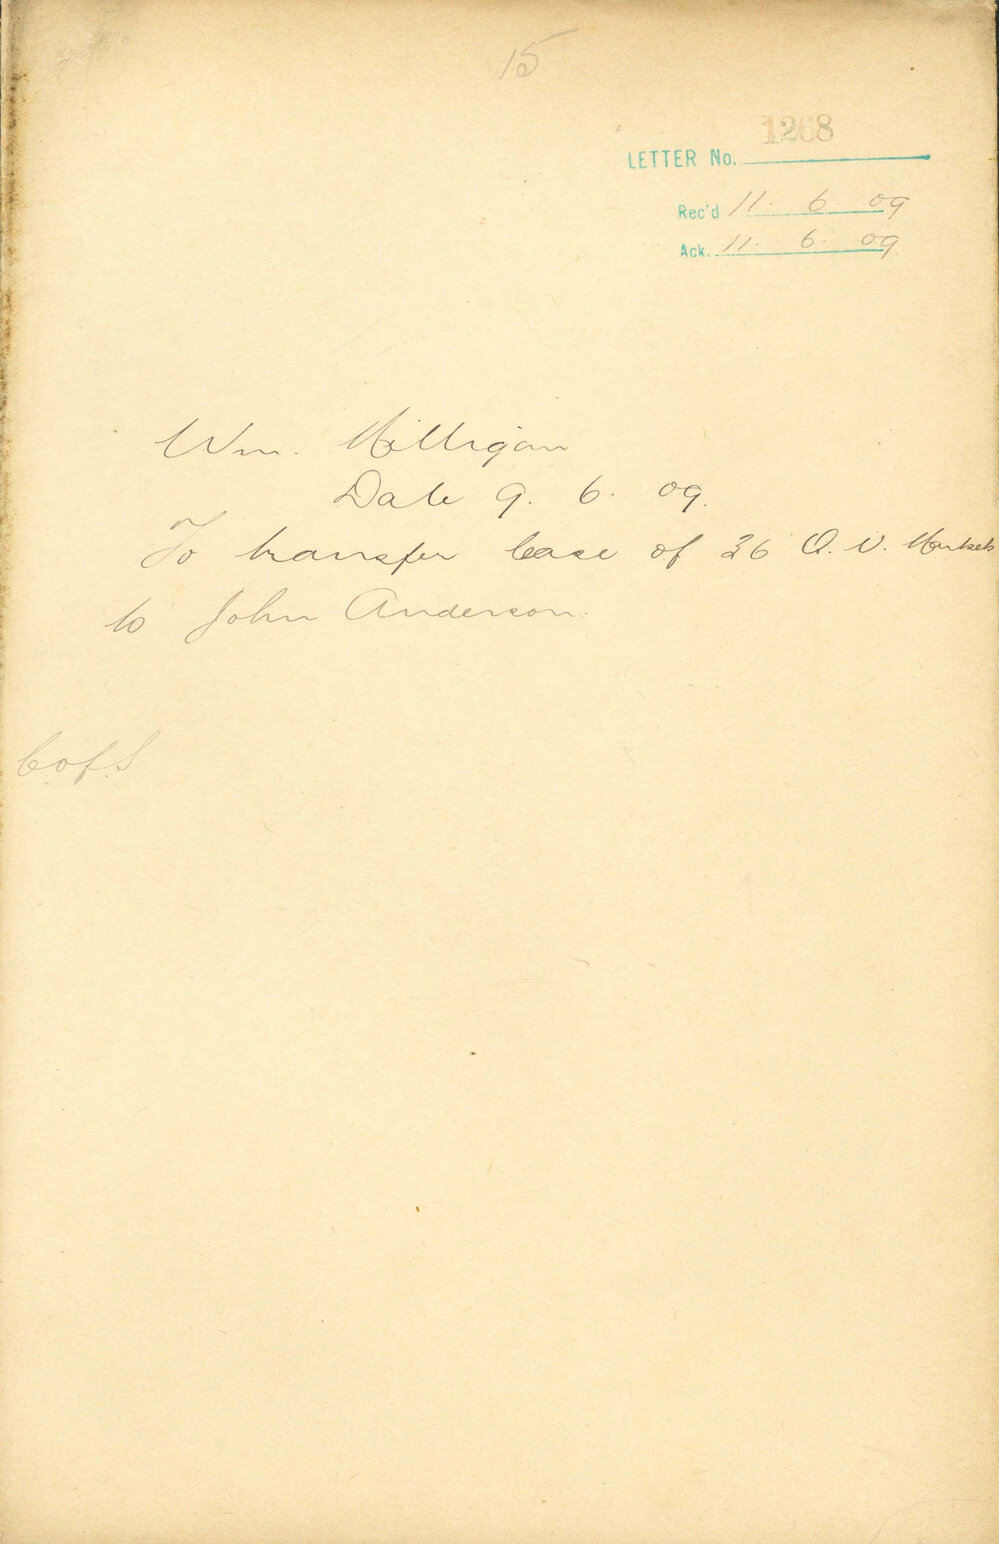 15
1268
LETTER No.
Rec'd 11. 6. 09
Ack. 11. 6. 09
Wm. Milligan
Date 9. 6. 09.
To transfer lease of 36 Q. V. Markets
to John Anderson.
C of S